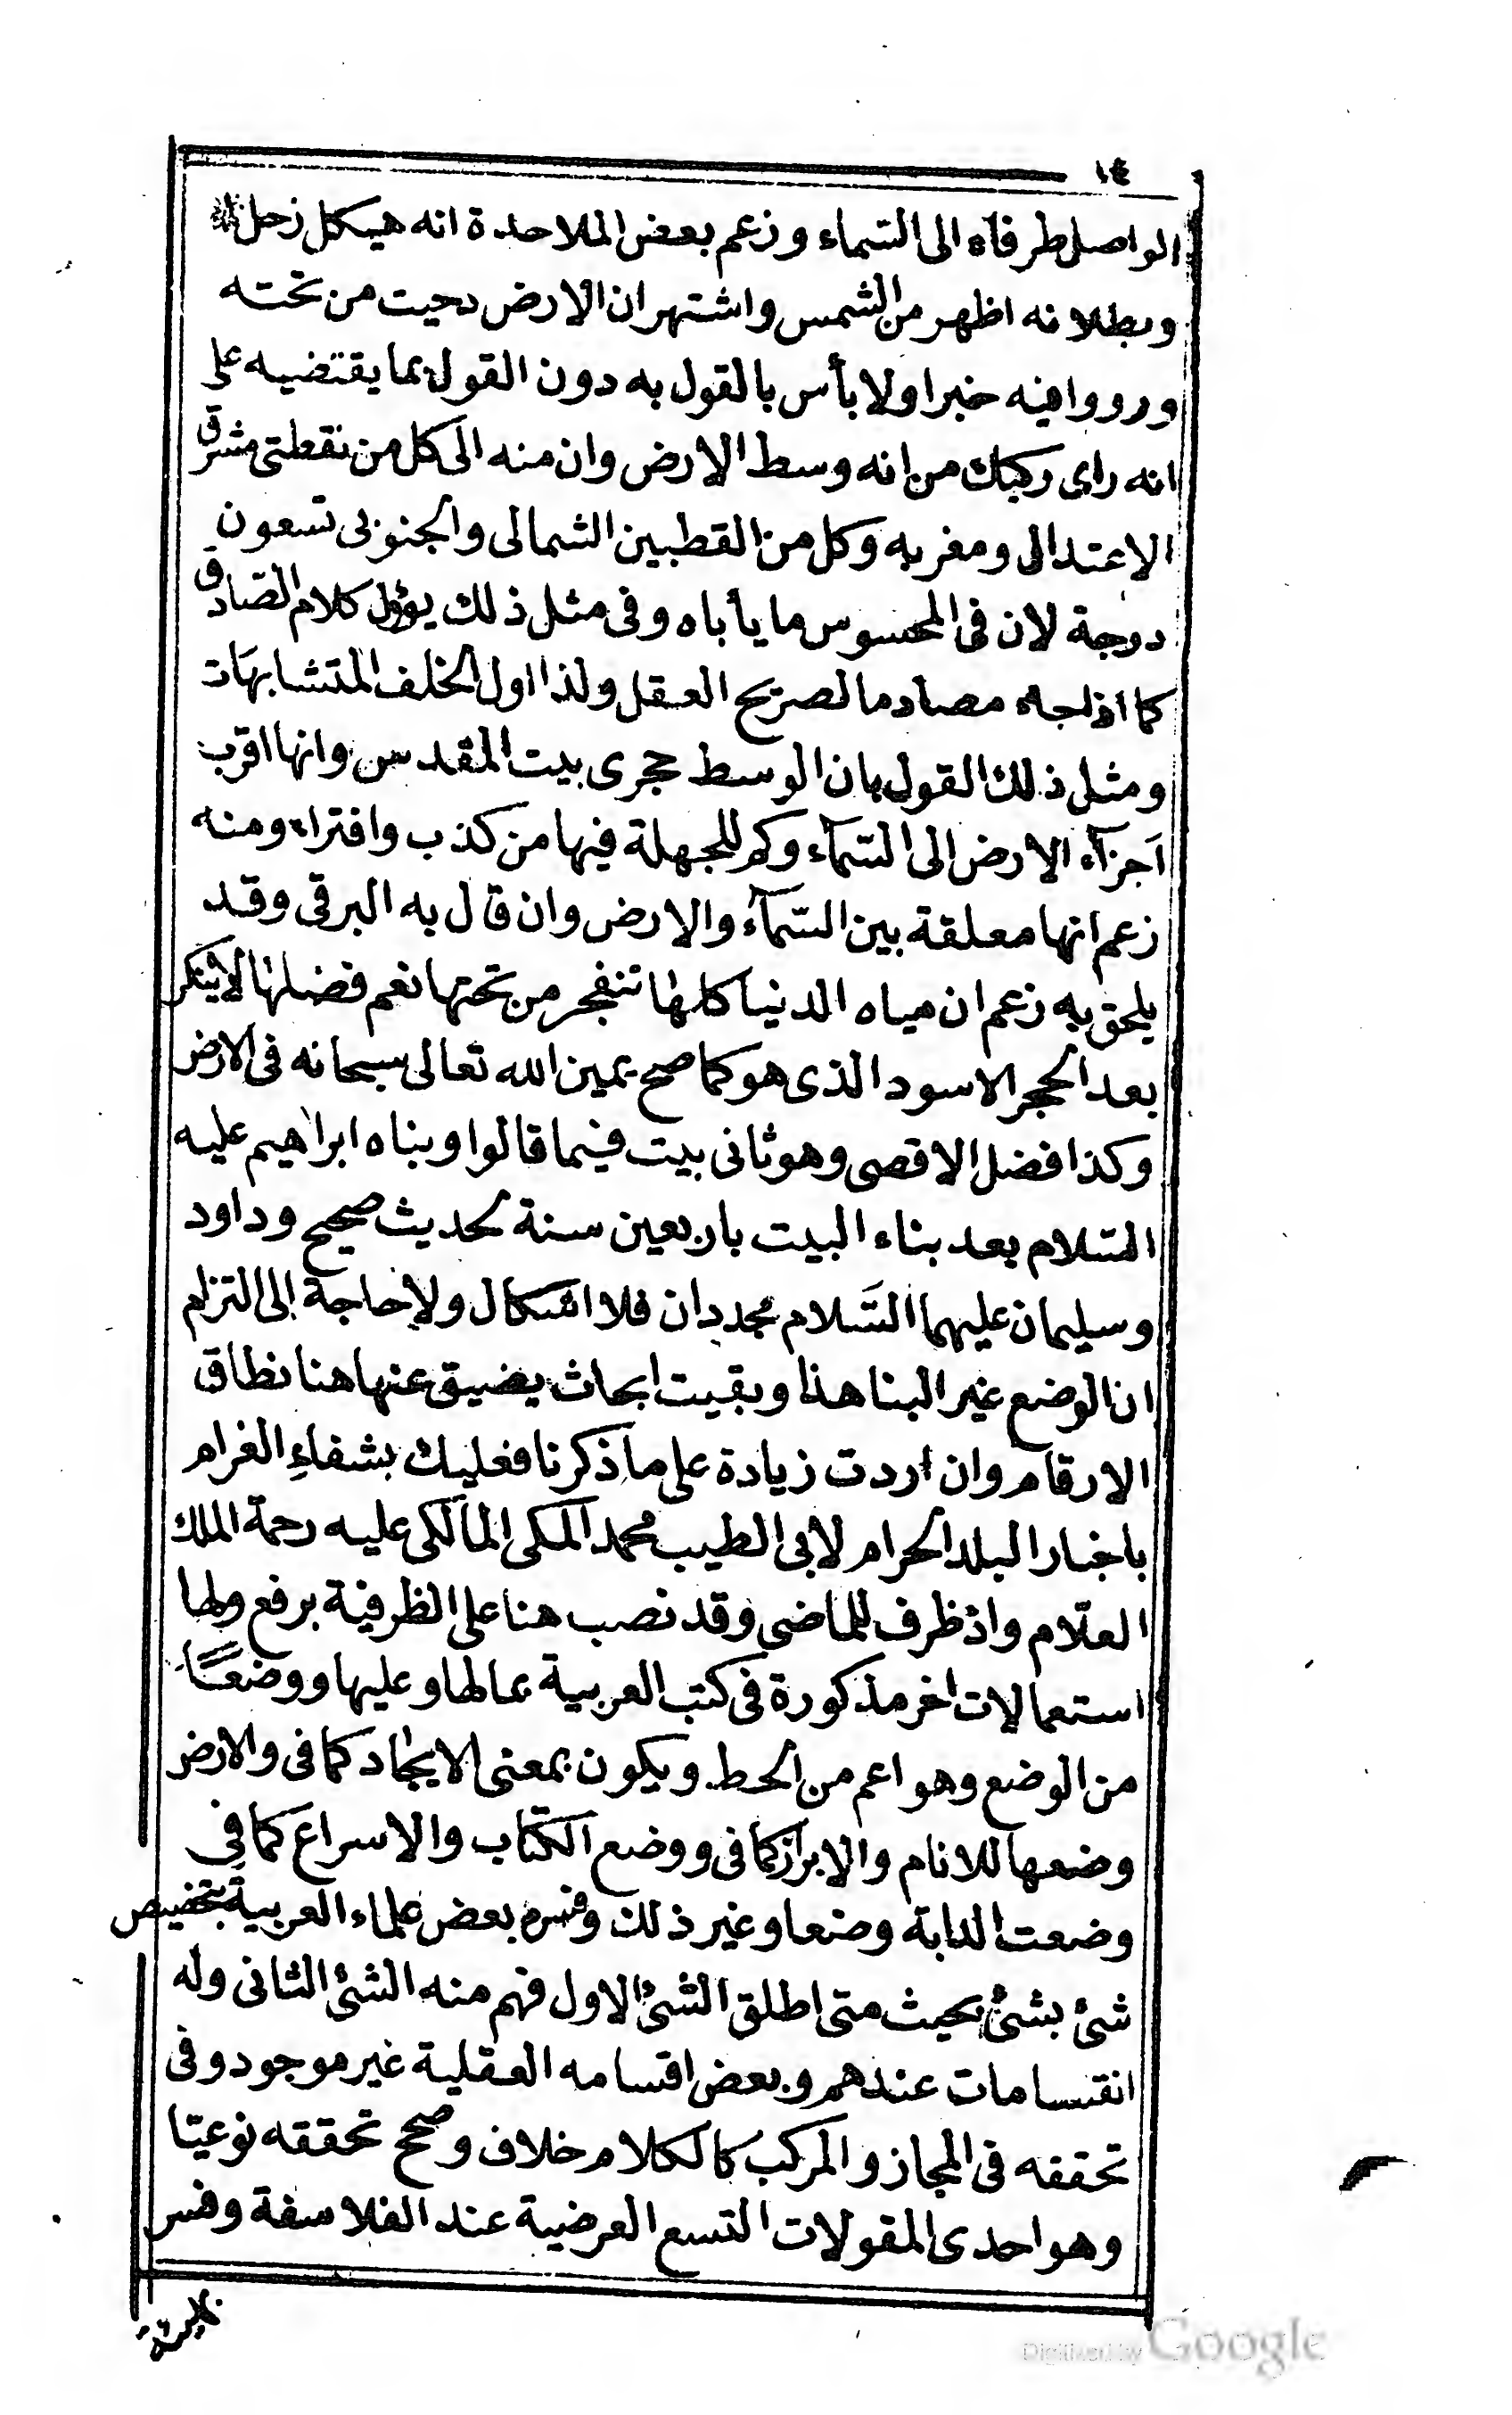 ١٤
الواصل طرفاه الى السّماء وزعم بعض الملاحدة انه هيكل زحل
وبطلانه اظهر من الشمس واشتهر ان الارض دحيت من تحته
ورووا فيه خبرا ولا بأس بالقول به دون القول بما يقتضيه على
انه راى ركيك من انه وسط الارض وان منه الى كل من نقطتى مشرق
الاعتدال ومغربه وكل من القطبين الشمالى والجنوبى تسعون
درجة لان فى المحسوس ما يأباه وفى مثل ذلك يؤول كلام الصّادق
كما اذا جاء مصادما لصريح العقل ولذا اول الخلف المتشابهات
ومثل ذلك القول بان الوسط حجرى بيت المقدس وانها اقرب
اجزآء الارض الى السّمآء وكم للجهلة فيها من كذب وافتراء ومنه
زعم انها معلقة بين السّمآء والارض وان قال به البرقى وقد
يلحق به زعم ان مياه الدنيا كلها تنفجر من تحتها نعم فضلها لا ينكر
بعد الحجر الاسود الذى هو كما صح يمين الله تعالى سبحانه فى الارض
وكذا فضل الاقصى وهو ثانى بيت فيما قالوا وبناه ابراهيم عليه
السّلام بعد بناء البيت باربعين سنة لحديث صحيح وداود
وسليمان عليهما السّلام مجددان فلا اشكال ولا حاجة الى التزام
ان الوضع غير البنا هذا وبقيت ابحاث يضيق عنها هنا نطاق
الارقام وان اردت زيادة على ما ذكرنا فعليك بشفاء الغرام
باخبار البلد الحرام لابى الطيب محمد المكى المالكى عليه رحمة الملك
العلّام واذ ظرف للماضى وقد نصب هنا على الظرفية برفع ولها
استعمالات اخر مذكورة فى كتب العربية بمالها وعليها ووضعًا
من الوضع وهو اعم من الحط ويكون بمعنى الايجاد كما فى والارض
وضعها للانام والابراز كما فى ووضع الكتاب والاسراع كما فى
وضعت الدابة وضعا وغير ذلك وفسره بعض علماء العربية بتخصيص
شئ بشئ بحيث متى اطلق الشئ الاول فهم منه الشئ الثانى وله
انقسامات عندهم وبعض اقسامه العقلية غير موجود وفى
تحققه فى المجاز والمركب كالكلام خلاف وصحح تحققه نوعيّا
وهو احدى المقولات التسع العرضية عند الفلاسفة وفسر
Digitized by Google